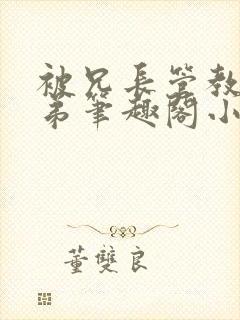 被兄長管教
弟筆趣閣小
董雙良